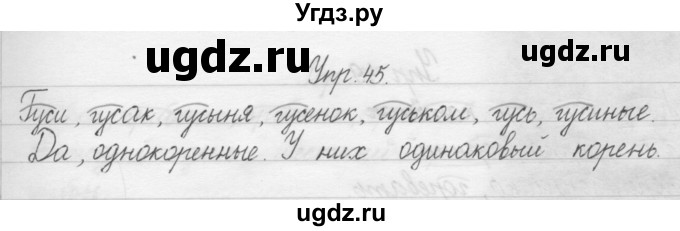 Угдз.ру
ugdz.ru ugdz.ru
Упр. 45.
Гуси, гусак, гусыня, гусенок, гуськом, гусь, гусиные.
Да, однокоренные. У них одинаковый корень.
ugdz.ru ugdz.ru
ugdz.ru